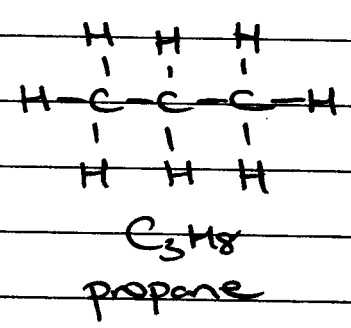 H H H
H-C-C-C-H
H H H
C₃H₈
propane